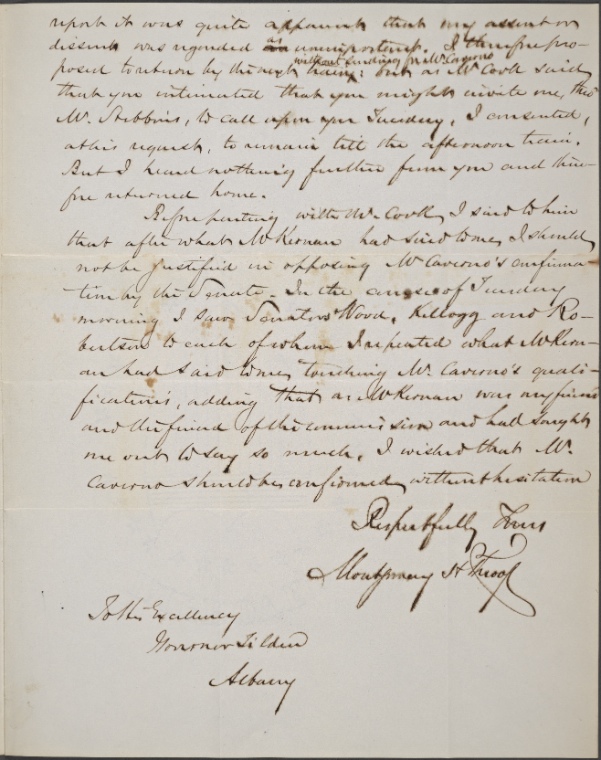 report it was quite apparent that my assent or
dissent was regarded as unimportant. I therefore pro-
posed to return by the next train; but as Mr Cook said
without sending for Mr Caverno
that you intimated that you might invite me, thro'
Mr. Stebbins, to call upon you Tuesday, I consented,
at his request, to remain till the afternoon train.
But I heard nothing further from you and there-
fore returned home.
Before parting with Mr. Cook, I said to him
that after what Mr Kernan had said to me, I should
not be justified in opposing Mr Caverno's confirma-
tion by the Senate. In the course of Tuesday
morning I saw Senators Wood, Kellogg and Ro-
bertson to each of whom I repeated what Mr Kern-
an had said to me, touching Mr. Caverno's quali-
fications, adding that as Mr Kernan was my friend
and the friend of the commission and had sought
me out to say so much, I wished that Mr.
Caverno should be confirmed, without hesitation
Respectfully Yours
Montgomery H Throop
To His Excellency
Governor Tilden
Albany